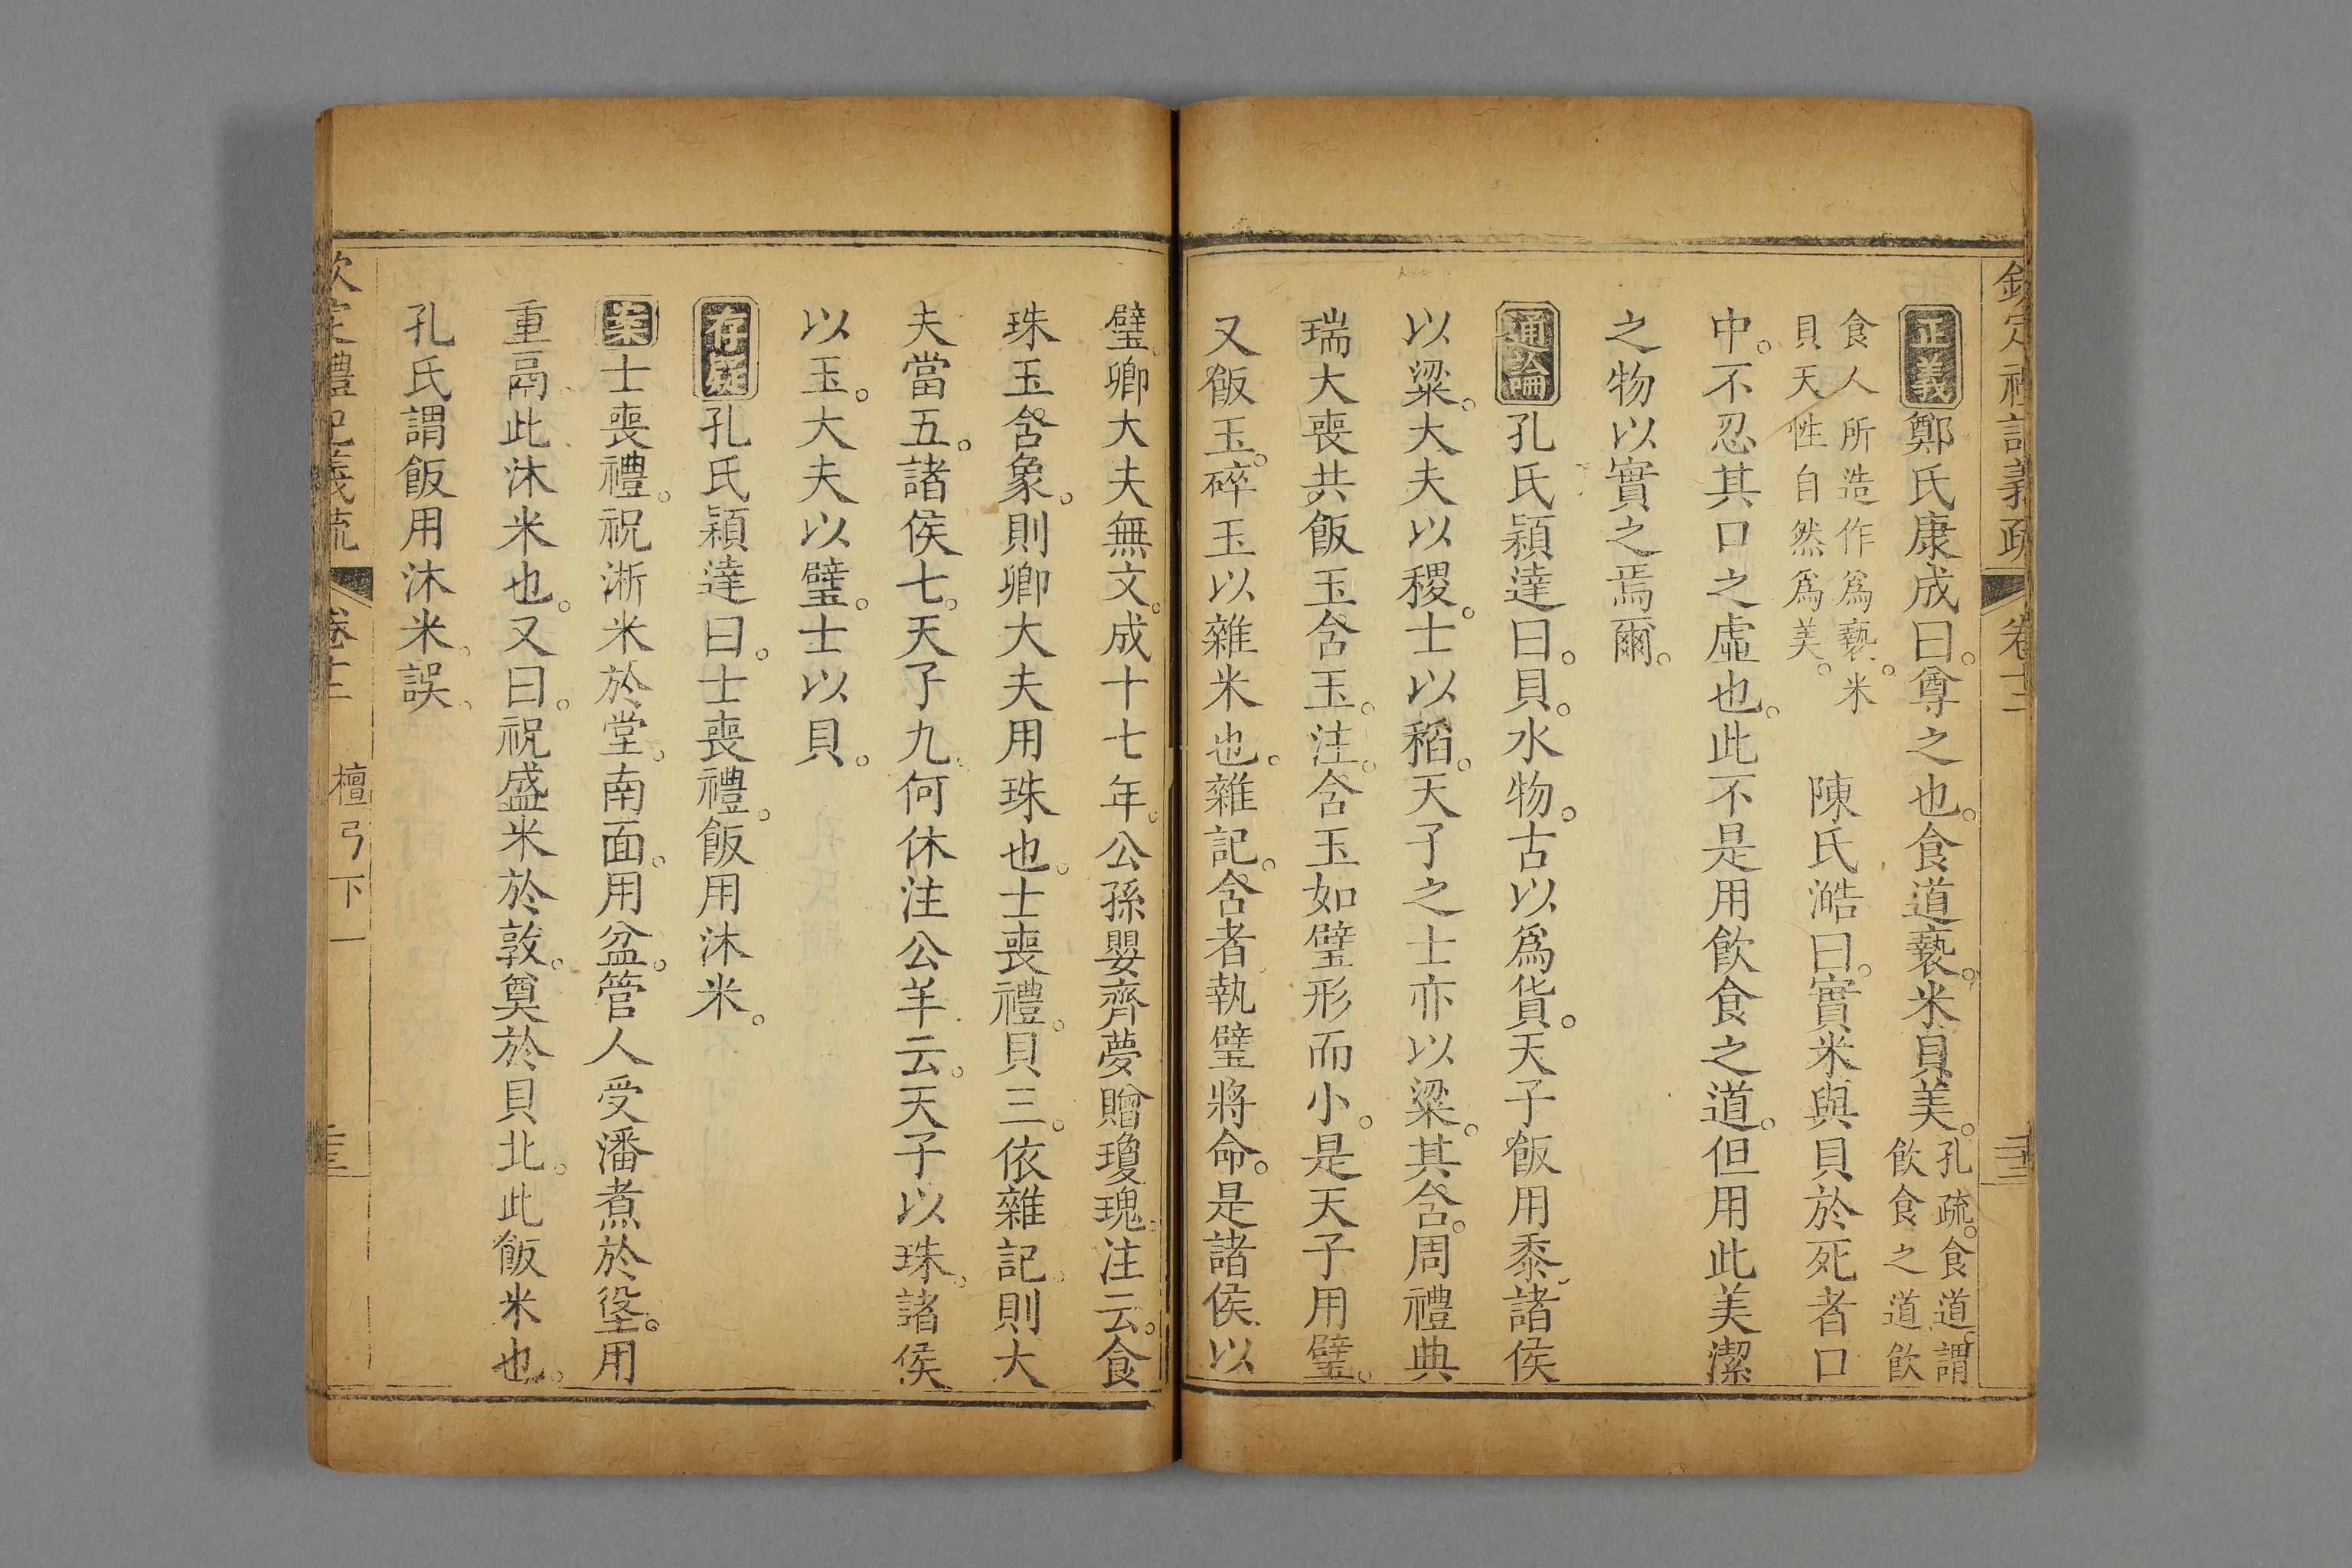 欽定禮記義疏 卷十二
正義鄭氏康成曰。尊之也。食道褻。米貝美。孔疏。食道。謂飲食之道飲
食人所造作爲褻。米貝天性自然爲美。 陳氏澔曰。實米與貝於死者口
中。不忍其口之虛也。此不是用飲食之道。但用此美潔
之物以實之焉爾。
通論孔氏穎達曰。貝。水物。古以爲貨。天子飯用黍。諸侯
以粱。大夫以稷。士以稻。天子之士亦以粱。其含。周禮典
瑞大喪共飯玉含玉。注。含玉如璧形而小。是天子用璧。
又飯玉。碎玉以雜米也。雜記。含者執璧將命。是諸侯以
璧。卿大夫無文。成十七年。公孫嬰齊夢贈瓊瑰。注云。食
珠玉。含象。則卿大夫用珠也。士喪禮。貝三。依雜記則大
夫當五。諸侯七。天子九。何休注公羊云。天子以珠。諸侯
以玉。大夫以璧。士以貝。
存疑孔氏穎達曰。士喪禮。飯用沐米。
案士喪禮。祝淅米於堂。南面。用盆。管人受潘煮於垼。用
重鬲。此沐米也。又曰。祝盛米於敦。奠於貝北。此飯米也。
孔氏謂飯用沐米。誤。
欽定禮記義疏 卷十二 檀弓下一